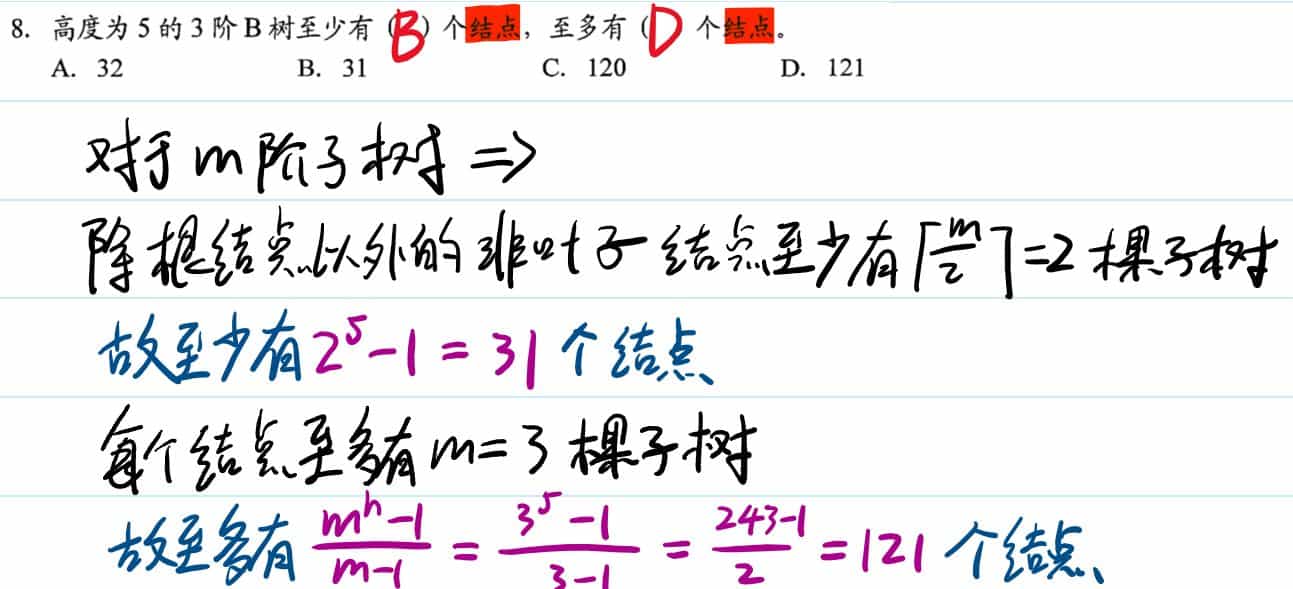 8. 高度为 5 的 3 阶 B 树至少有 (B) 个结点，至多有 (D 个结点。
A. 32 B. 31 C. 120 D. 121
对于 m 阶子树 ⇒
除根结点以外的非叶子结点至少有⌈m/2⌉=2 棵子树
故至少有 2^5-1 = 31 个结点、
每个结点至多有 m=3 棵子树
故至多有 (m^h-1)/(m-1) = (3^5-1)/(3-1) = (243-1)/2 = 121 个结点、